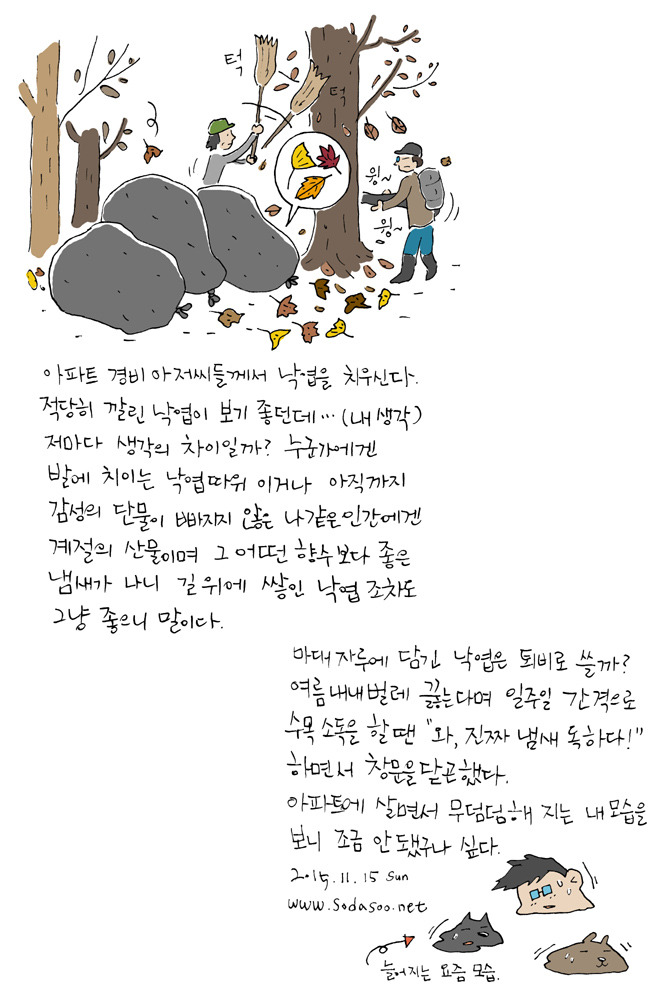 턱
턱
윙~
윙~
아파트 경비 아저씨들께서 낙엽을 치우신다.
적당히 깔린 낙엽이 보기 좋던데…(내 생각)
저마다 생각의 차이일까? 누군가에겐
발에 치이는 낙엽따위 이거나 아직까지
감성의 단물이 빠지지 않은 나같은 인간에겐
계절의 산물이며 그 어떤 향수보다 좋은
냄새가 나니 길 위에 쌓인 낙엽 조차도
그냥 좋으니 말이다.
마대 자루에 담긴 낙엽은 퇴비로 쓸까?
여름내내 벌레 끓는다며 일주일 간격으로
수목 소독을 할 땐 "와, 진짜 냄새 독하다!"
하면서 창문을 닫곤 했다.
아파트에 살면서 무덤덤해 지는 내 모습을
보니 조금 안 됐구나 싶다.
2015.11.15 sun
www.sodasoo.net
늘어지는 요즘 모습.